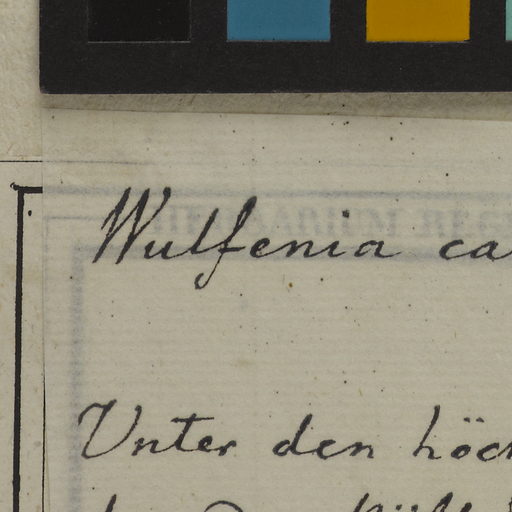 Wulfenia ca
HERBARIUM REG
Unter den höch